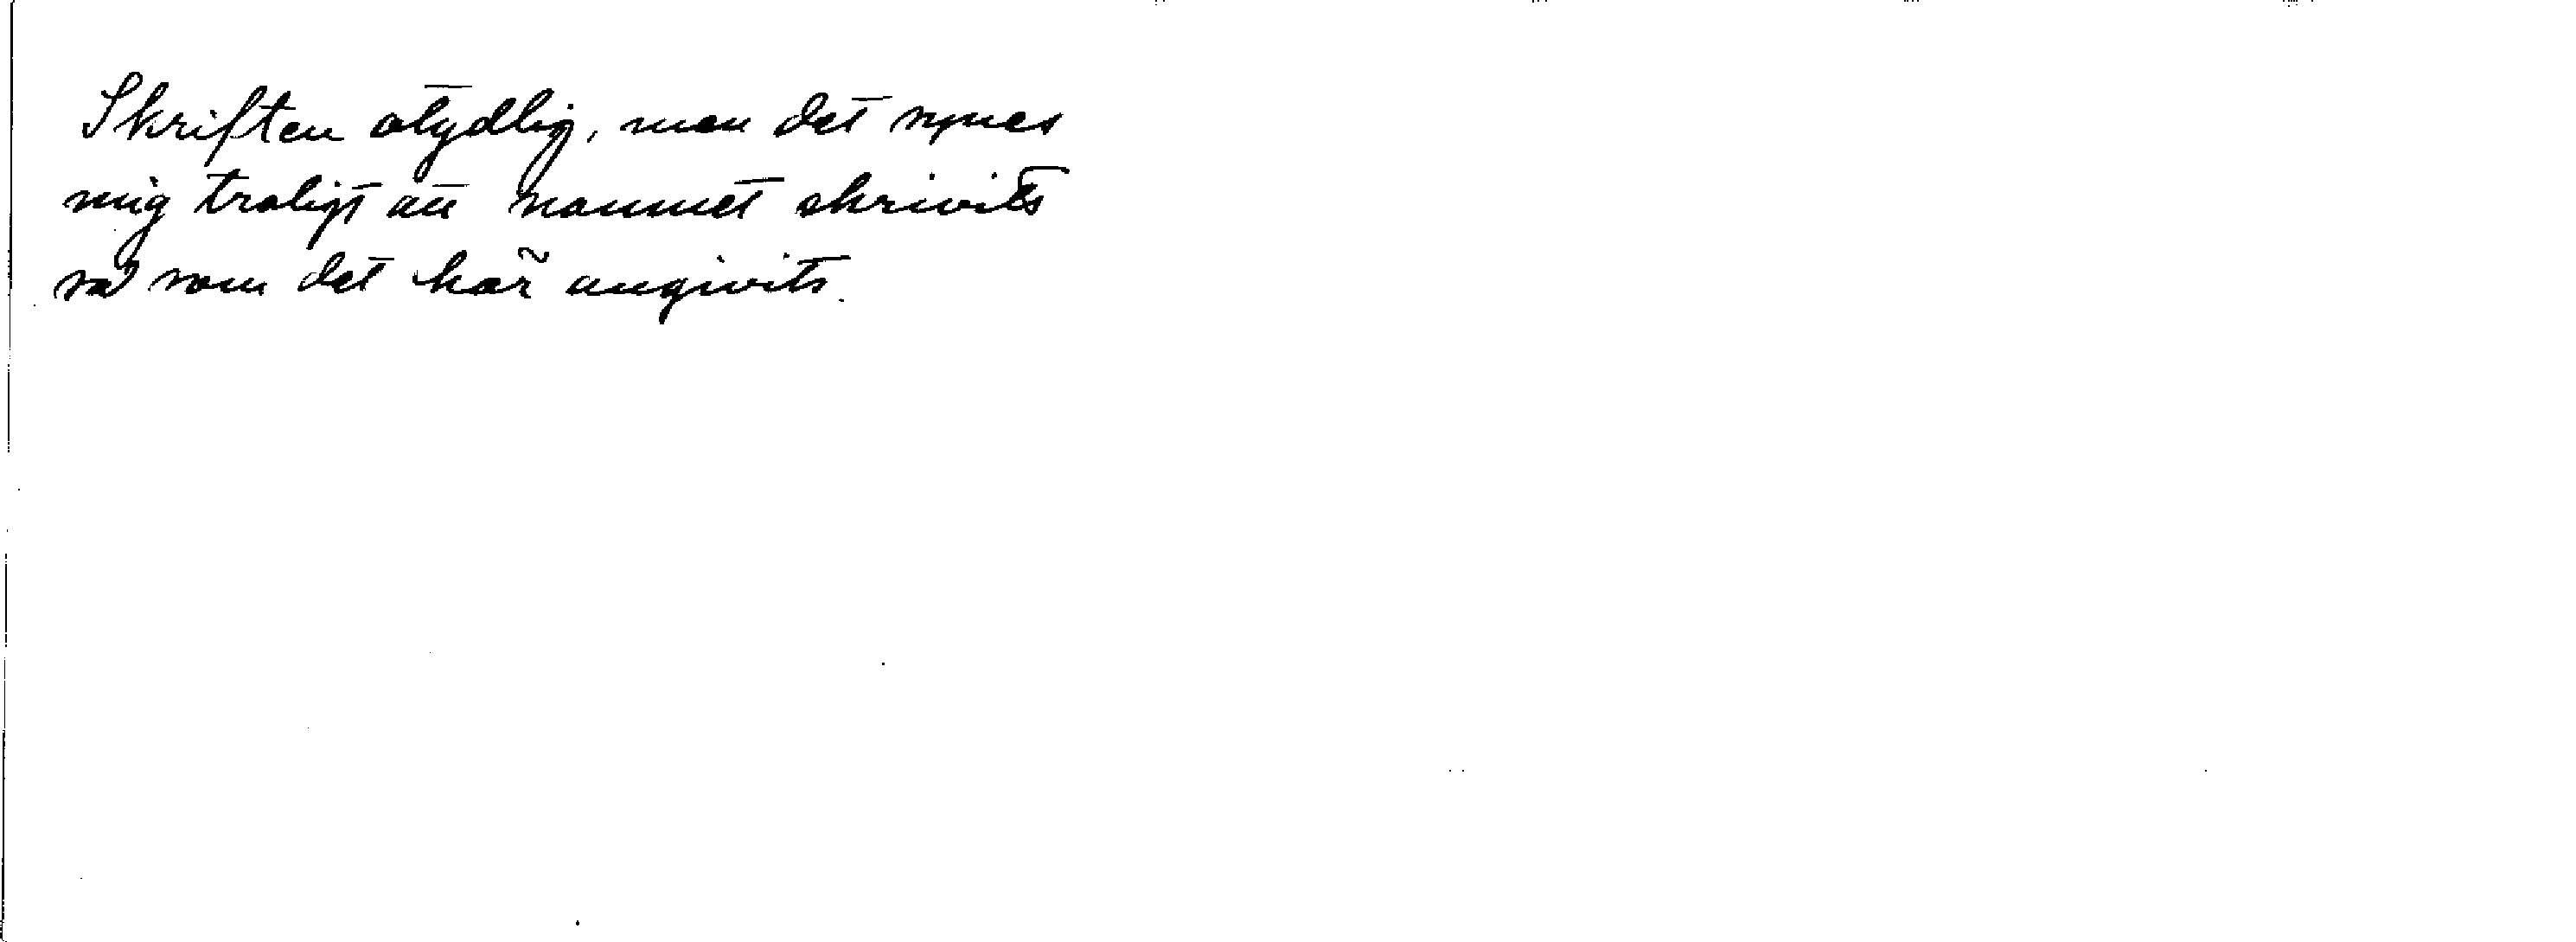 Skriften otydlig, men det synes
mig troligt att namnet skrivits
så som det här angivits.